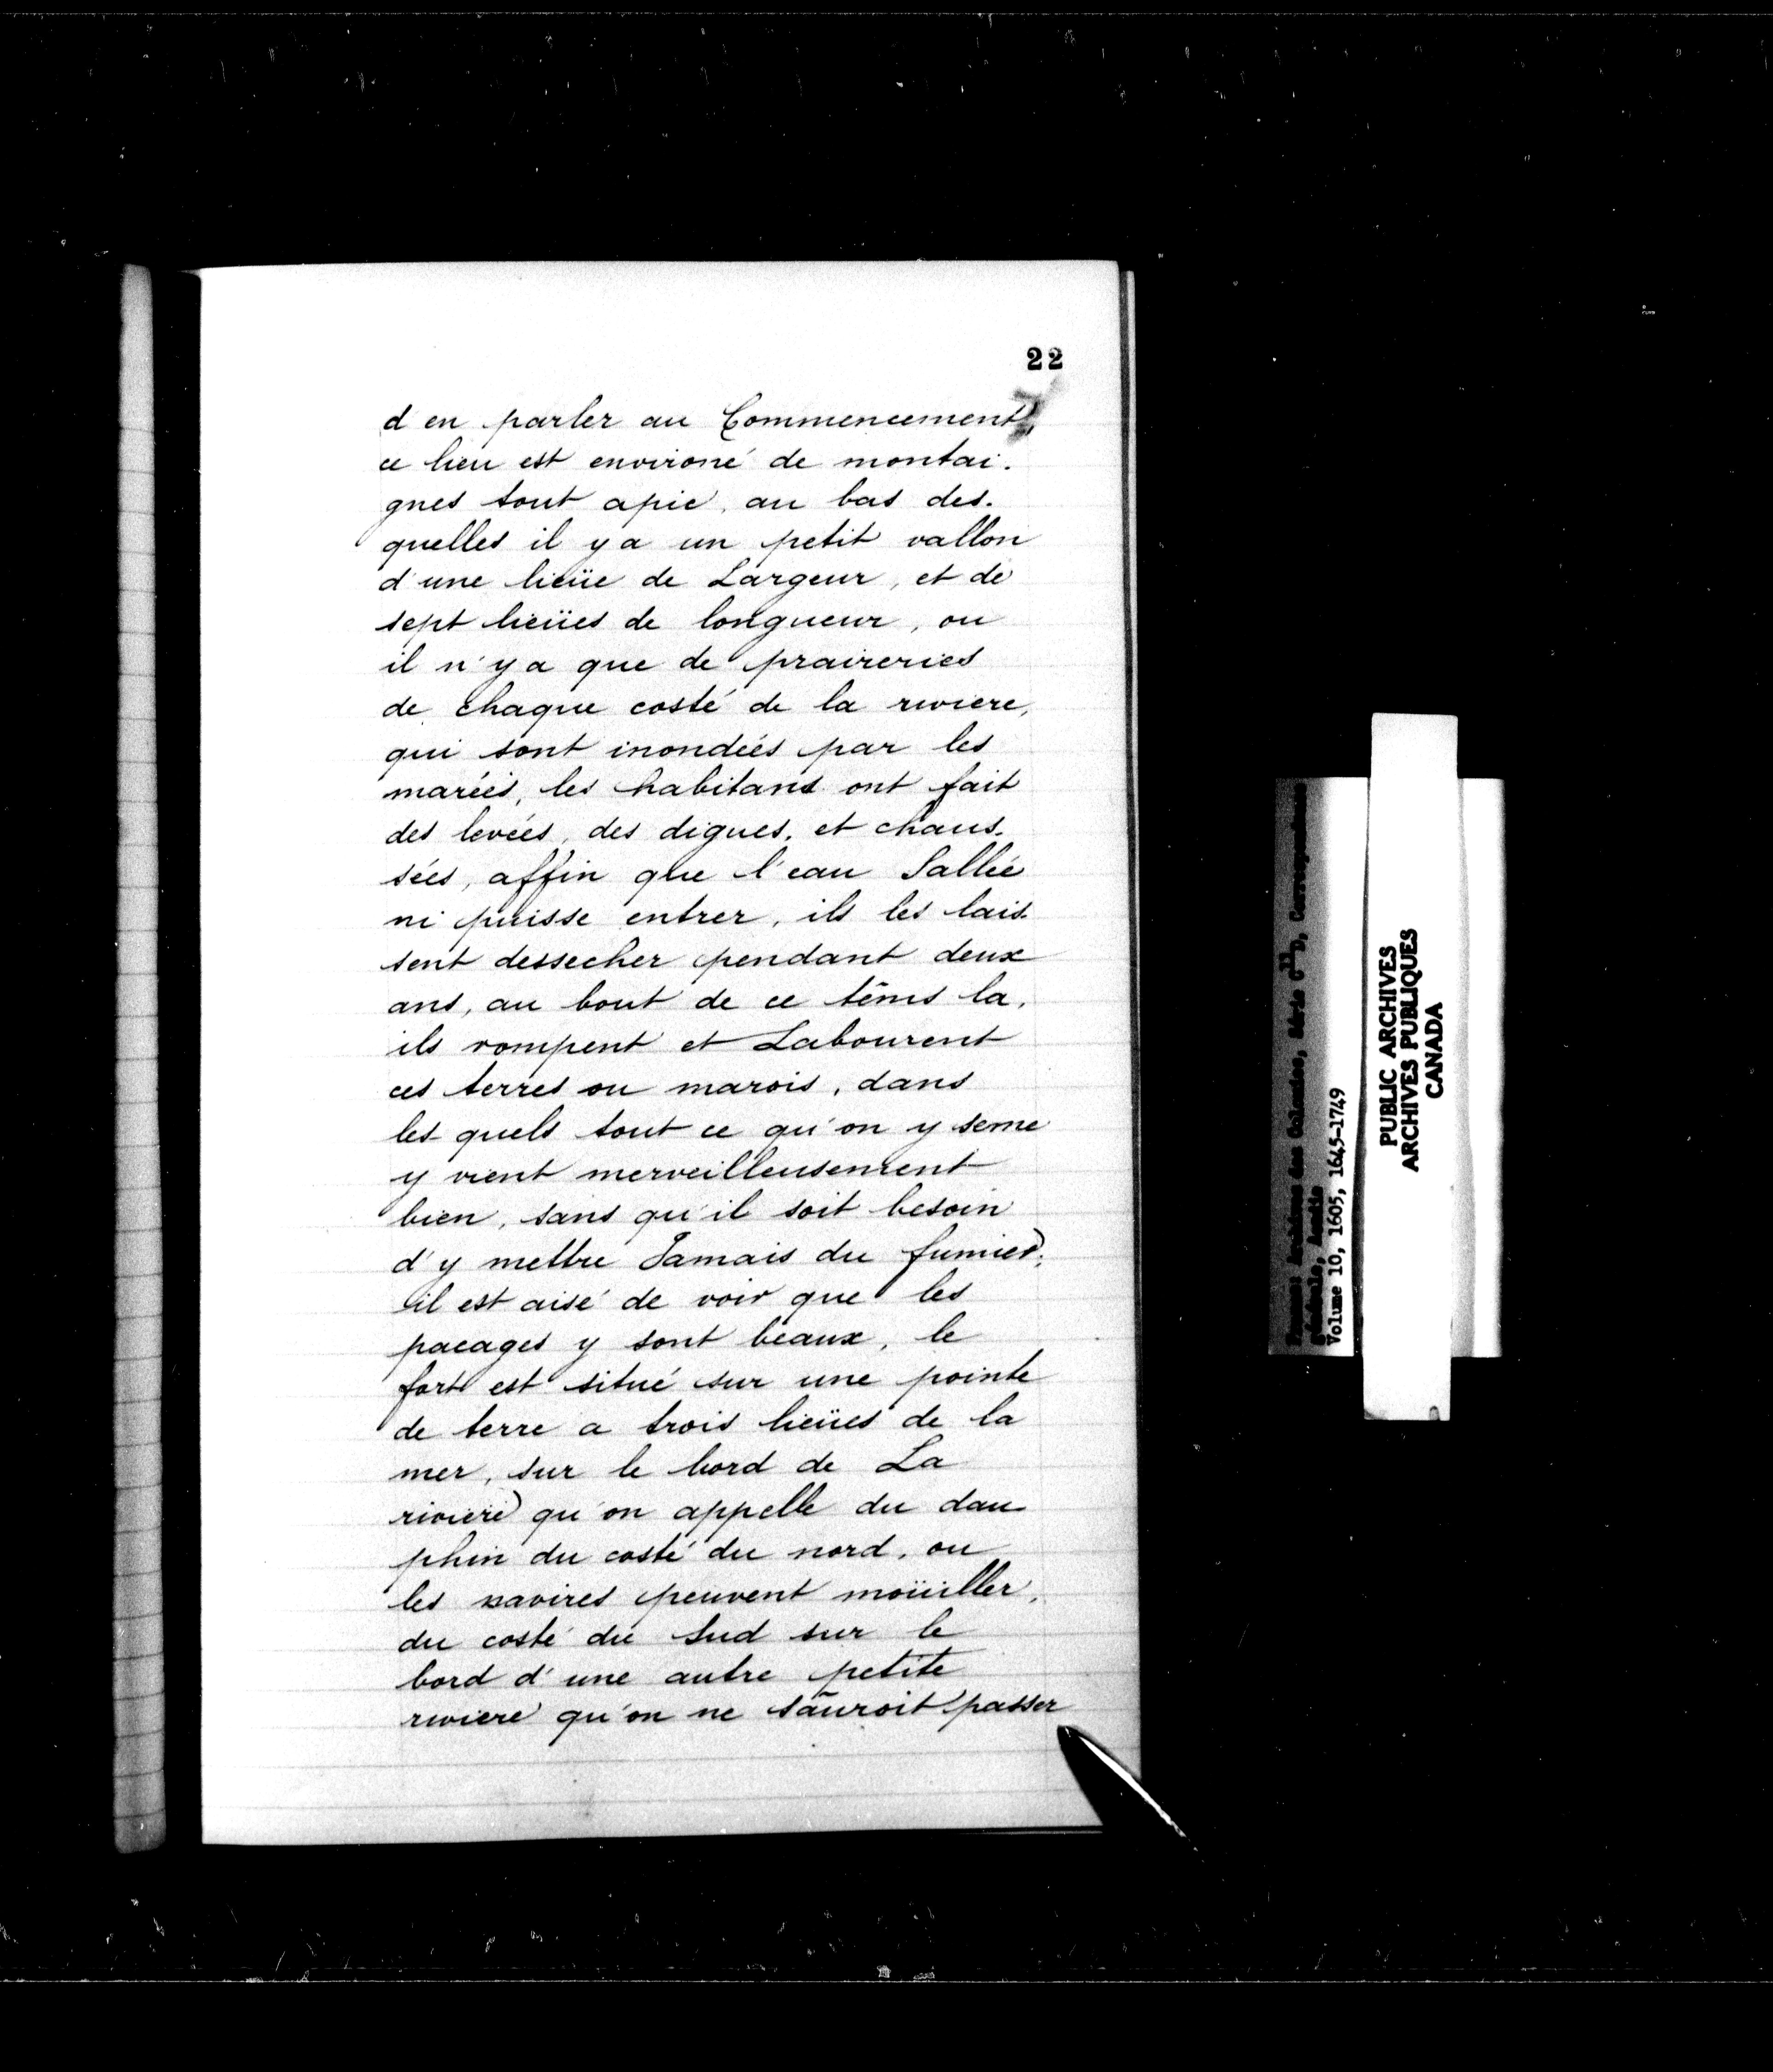 22
d en parler au Commencement,
ce lieu est environé de montai.
gnes tout apic, au bas des.
quelles il y a un petit vallon
d'une lieüe de Largeur, et de
sept lieües de longueur, ou
il n'y a que de praireries
de chaque costé de la riviere,
qui sont inondées par les
marées, les habitans ont fait
des levées, des digues, et chaus.
sées, affin que l'eau Sallée
ni puisse entrer, ils les lais.
sent dessecher pendant deux
ans, au bout de ce têms la,
ils rompent et Labourent
ces terres ou marois, dans
les quels tout ce qu'on y seme
y vient merveilleusement
bien, sans qu'il soit besoin
d'y mettre Jamais du fumier,
il est aisé de voir que les
pacages y sont beaux, le
fort est situé sur une pointe
de terre a trois lieües de la
mer, sur le bord de La
riviere qu'on appelle du dau
phin du costé du nord, ou
les navires peuvent moüiller,
du costé du Sud sur le
bord d'une autre petite
riviere qu'on ne sauroit passer
France: Archives des Colonies, Série C11D, Correspondance
générale, Acadie
Volume 10, 1605, 1645-1749
PUBLIC ARCHIVES
ARCHIVES PUBLIQUES
CANADA